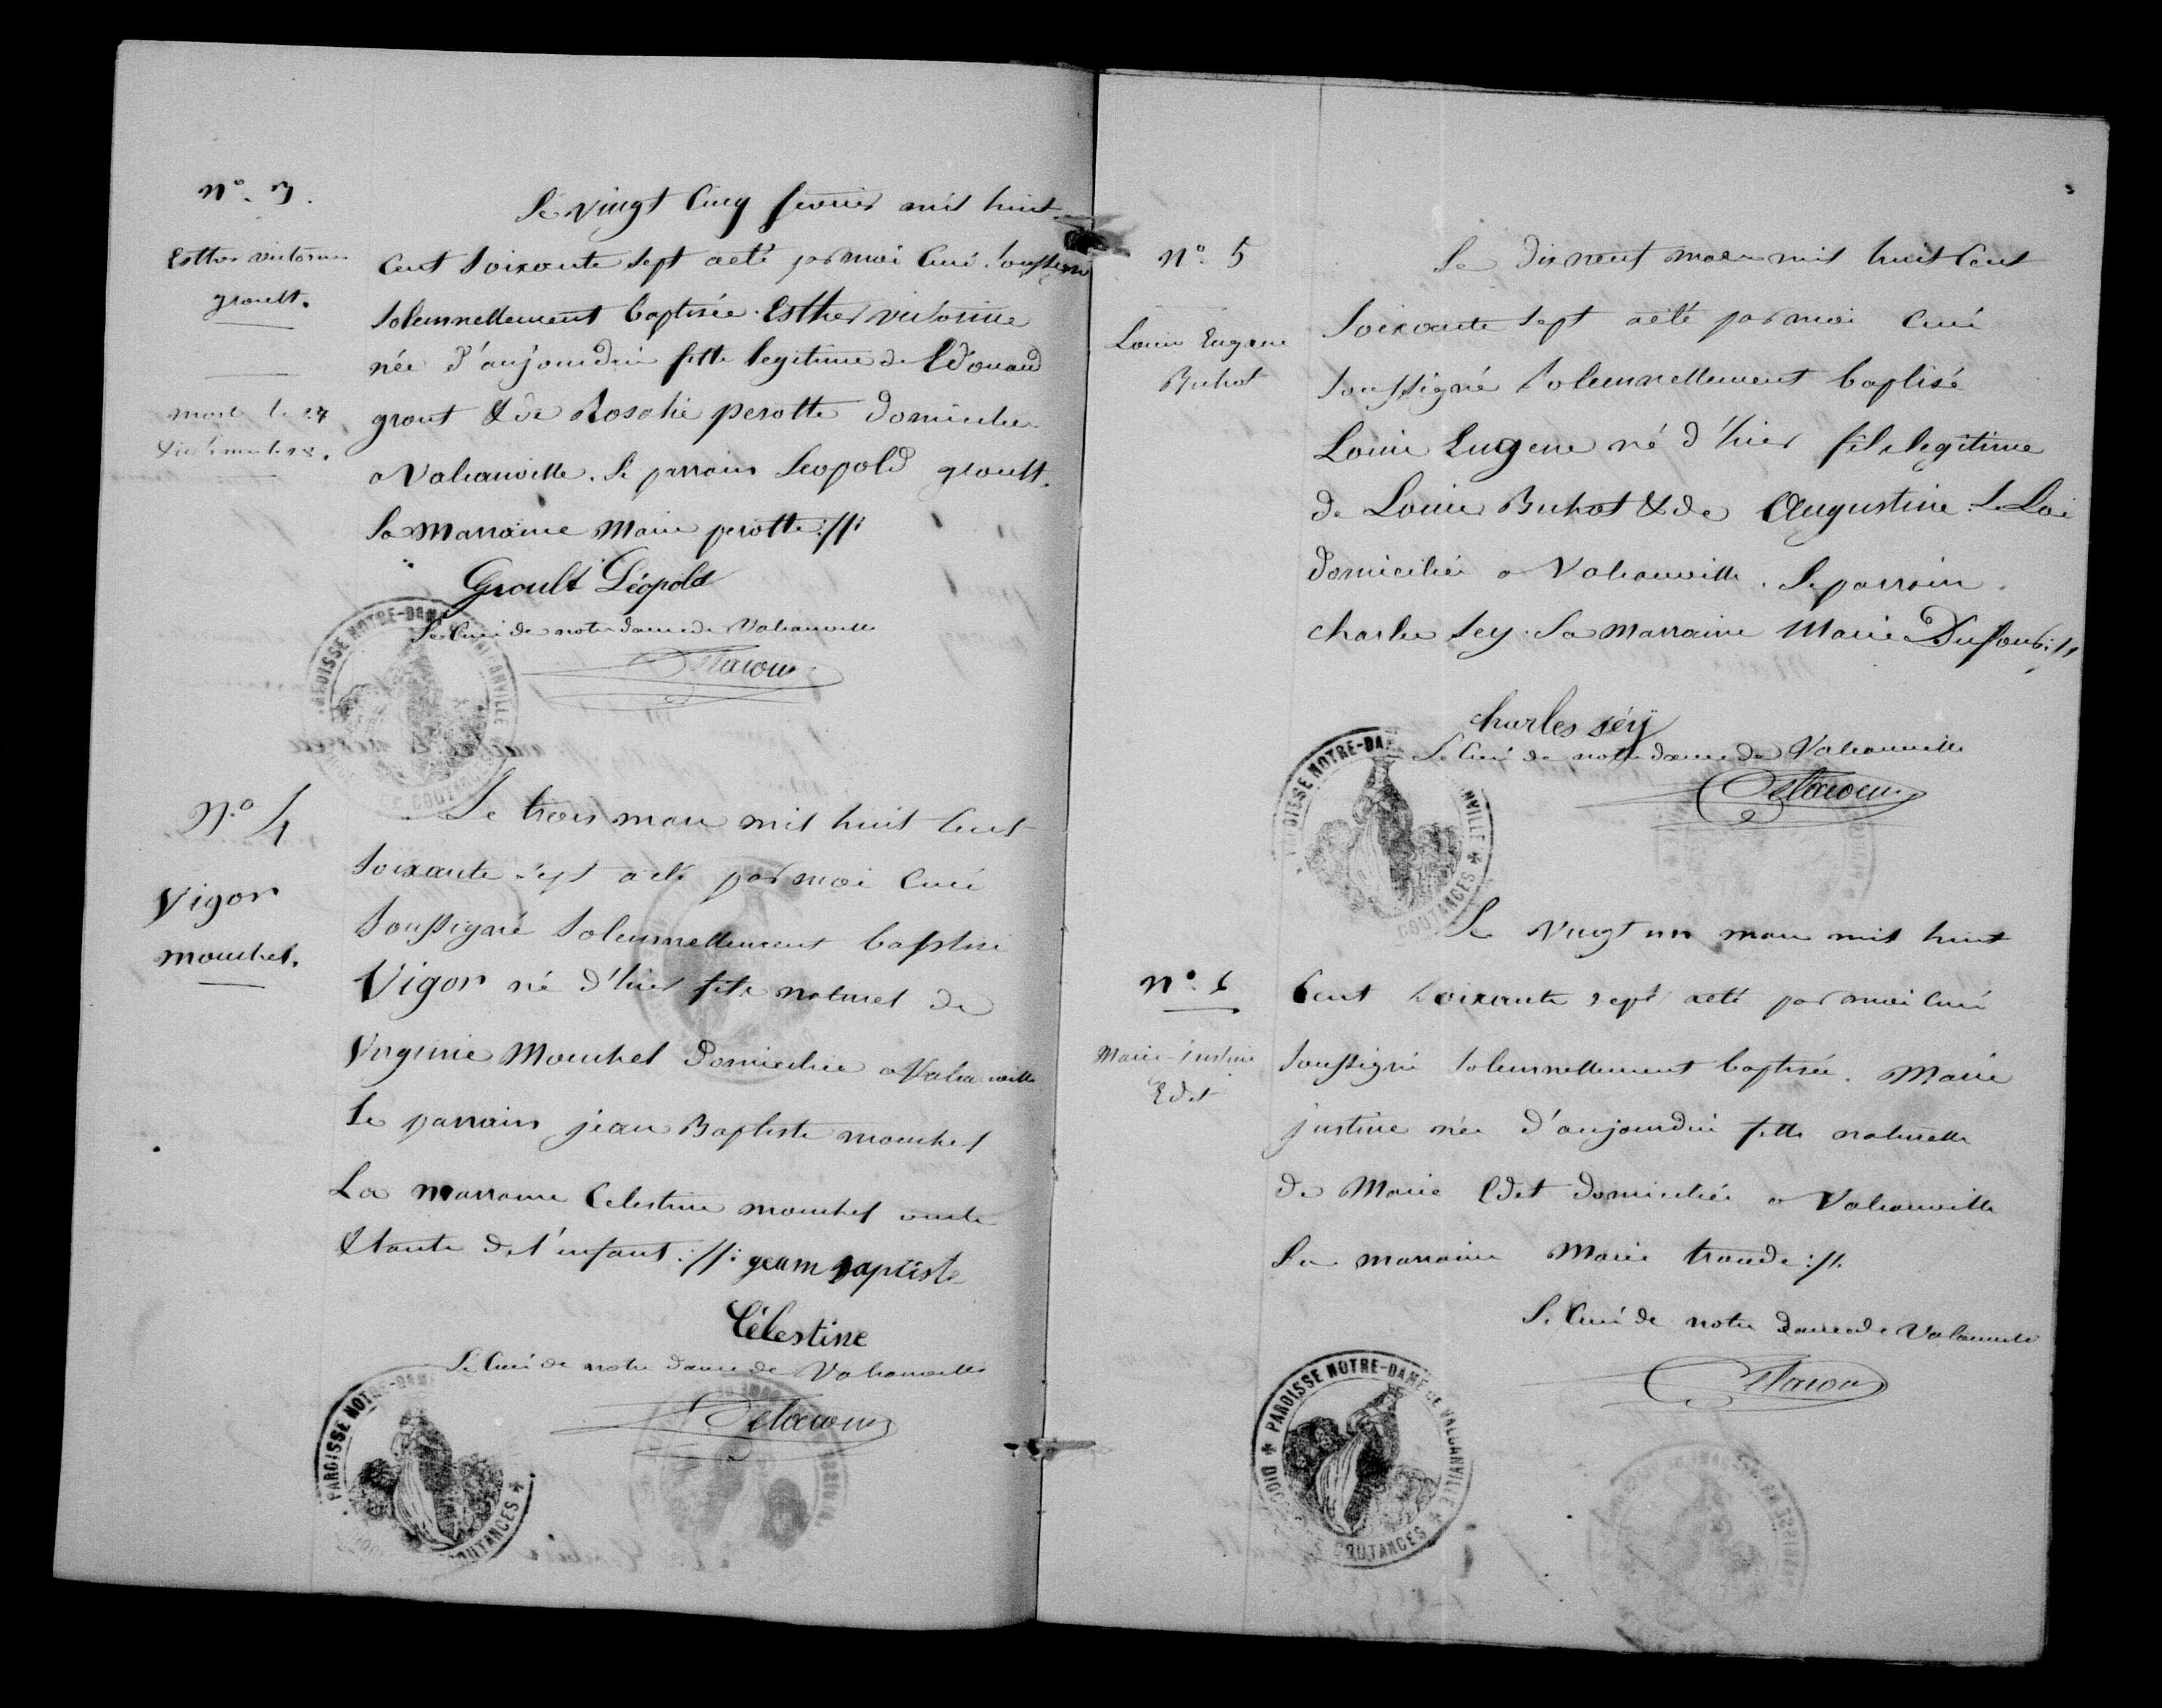 n°. 3.
Esther victorine
groult.
morte le 27
Le vingt cinq fevrier mil huit
cent soixante sept a eté par moi curé soussigné
solemnellement baptisée Esther victorine
née d'aujourdui fille legitime de Edouard
groult & de Rosalie perotte domiciliés
a Valcanville. Le parrain Leopold groult.
La Marraine Marie perotte ://:
Groult Léopold
Le Curé de notre dame de Valcanville
Delacour
PAROISSE NOTRE-DAME DE VALCANVILLE
DE COUTANCES
N° 4
Vigor
mouchel.
Le trois mars mil huit cent
soixante sept a eté par moi curé
soussigné solemnellement baptisé
Vigor né d'hier fils naturel de
Virginie Mouchel domiciliée a Valcanville
Le parrain jean Baptiste mouchel
La marraine Celestine mouchel oncle
& tante de l'enfant ://: jeam baptiste
Célestine
Le Curé de notre dame de Valcanville
Delacour
PAROISSE NOTRE-DAME
COUTANCES
n° 5
Louis Eugene
Buhot
Le dix neuf mars mil huit cent
soixante sept a eté par moi curé
soussigné solemnellement baptisé
Louis Eugene né d'hier fils legitime
de Louis Buhot & de Augustine Le Loi
domiciliés a Valcanville. Le parrain
charles sey. La marraine Marie Dufour ://
charles séry
Le Curé de notre dame de Valcanville
Delacour
PAROISSE NOTRE-DAME
COUTANCES
n°. 6
Marie-justine
Edet
Le vingt un mars mil huit
Cent soixante sept a eté par moi curé
soussigné solemnellement baptisée. Marie
justine née d'aujourdui fille naturelle
de Marie Edet domiciliée a Valcanville
La marraine Marie troude ://.
Le Curé de notre dame de Valcanville
Delacour
PAROISSE NOTRE-DAME DE VALCANVILLE
DIOC DE COUTANCES